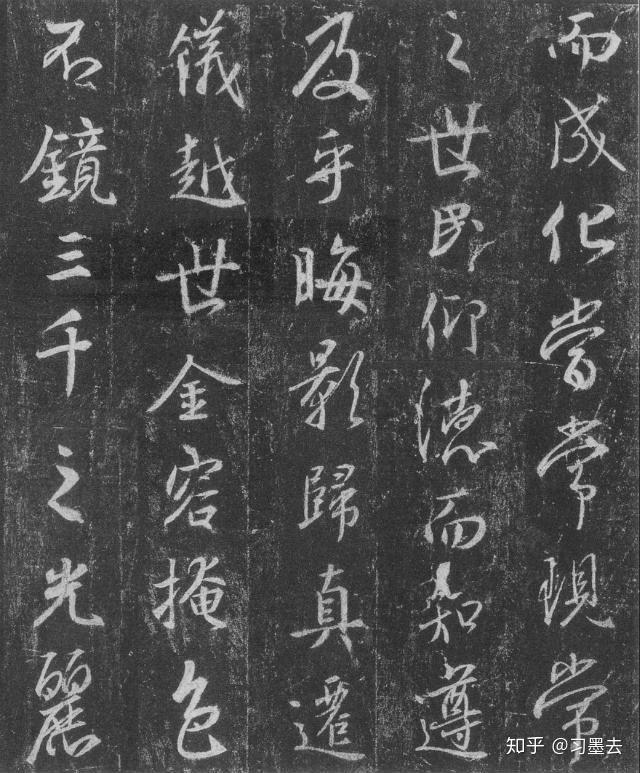 而成化當常現常
之世民仰德而知遵
及乎晦影歸真遷
儀越世金容掩色
不鏡三千之光麗
知乎 @习墨去